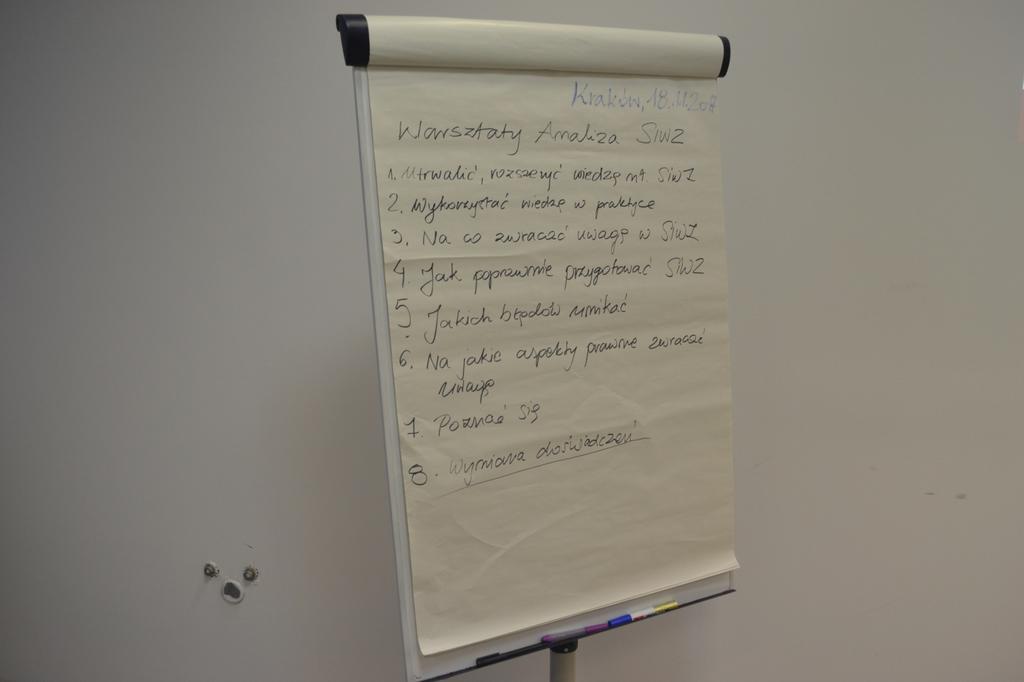 Kraków, 18.11.2017
Warsztaty Analiza SIWZ
1. Utrwalić, rozszerzyć wiedzę nt. SIWZ
2. Wykorzystać wiedzę w praktyce
3. Na co zwracać uwagę w SIWZ
4. Jak poprawnie przygotować SIWZ
5. Jakich błędów unikać
6. Na jakie aspekty prawne zwracać
uwagę
7. Poznać się
8. Wymiana doświadczeń